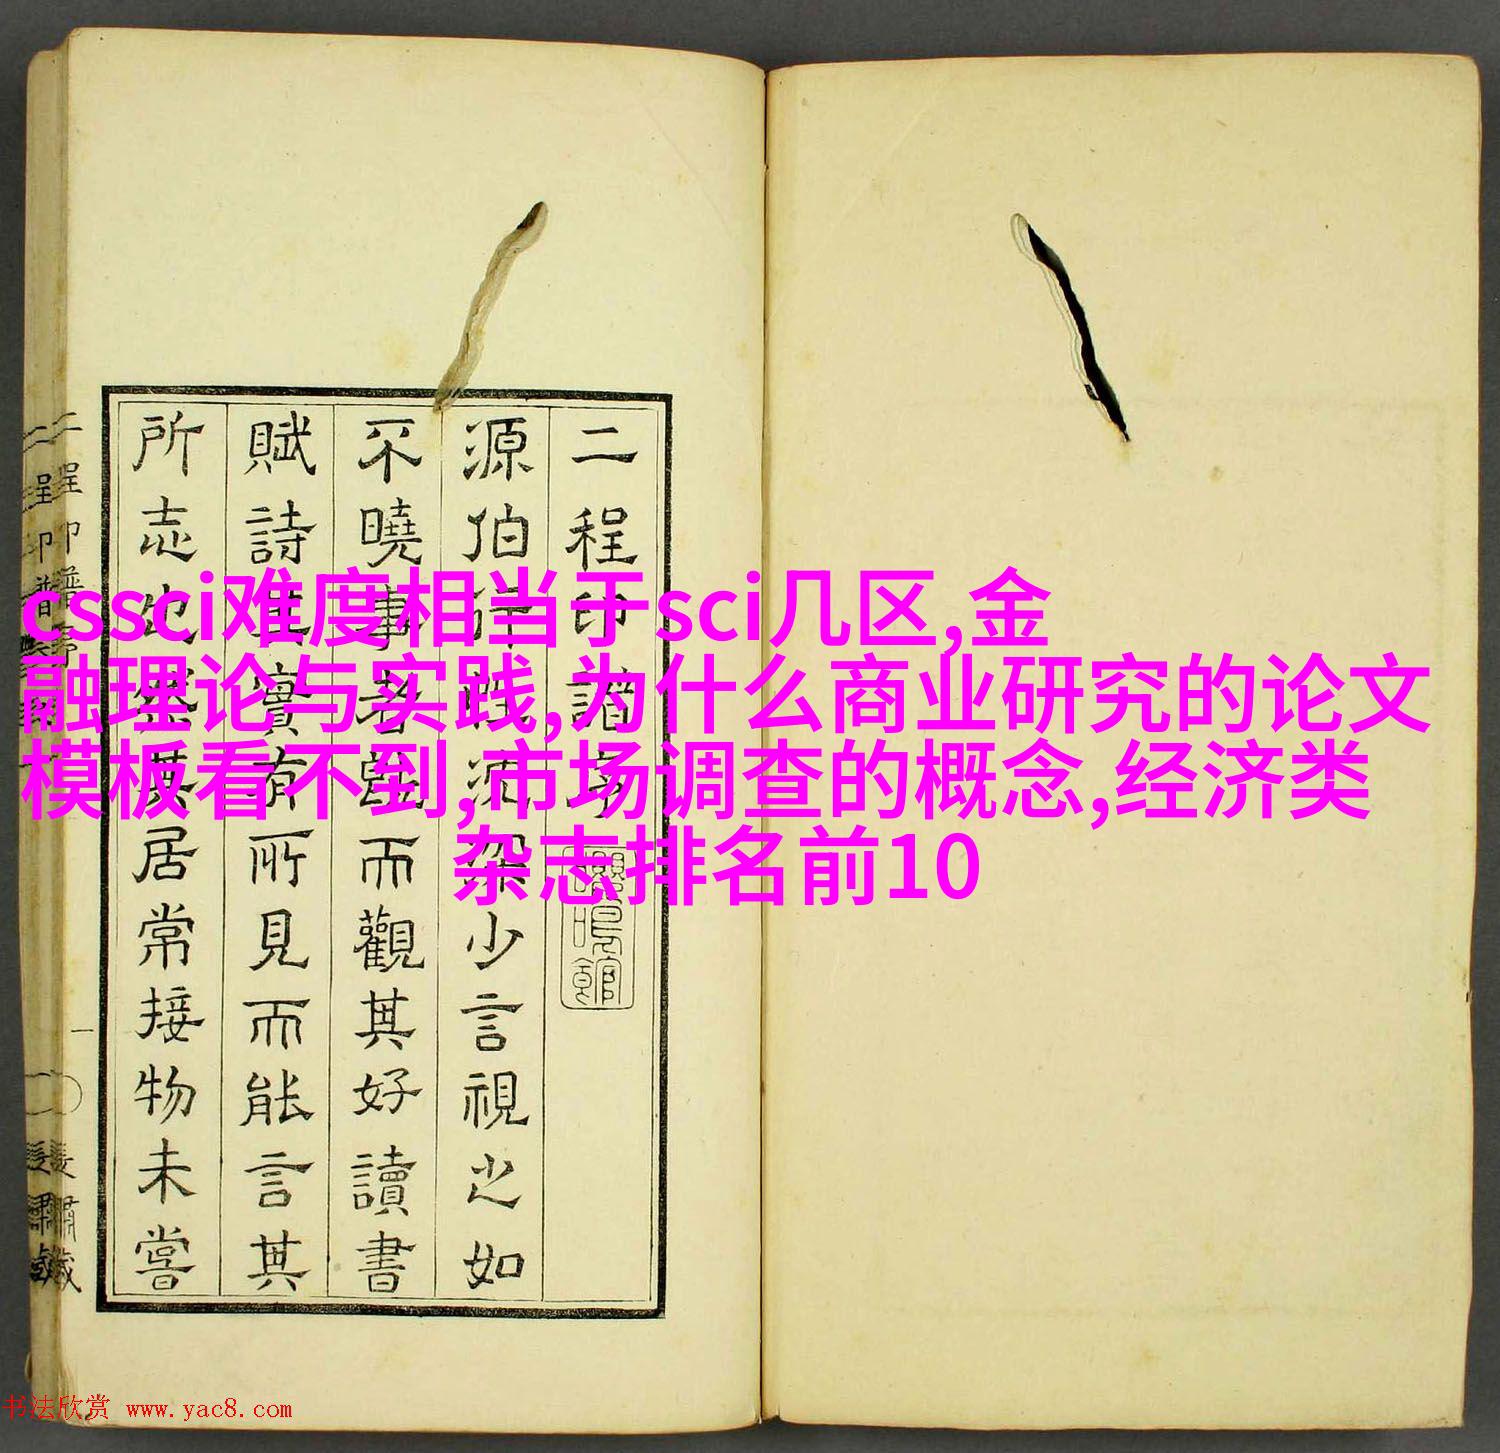 cssci难度相当于sci几区,金
融理论与实践,为什么商业研究的论文
模板看不到,市场调查的概念,经济类
杂志排名前10
二程印譜序
源伯沉深少言視之如
不曉事者既而觀其好讀書
賦詩其實有所見而能言其
所志也察其居常接物未嘗
书法欣赏 www.yac8.com